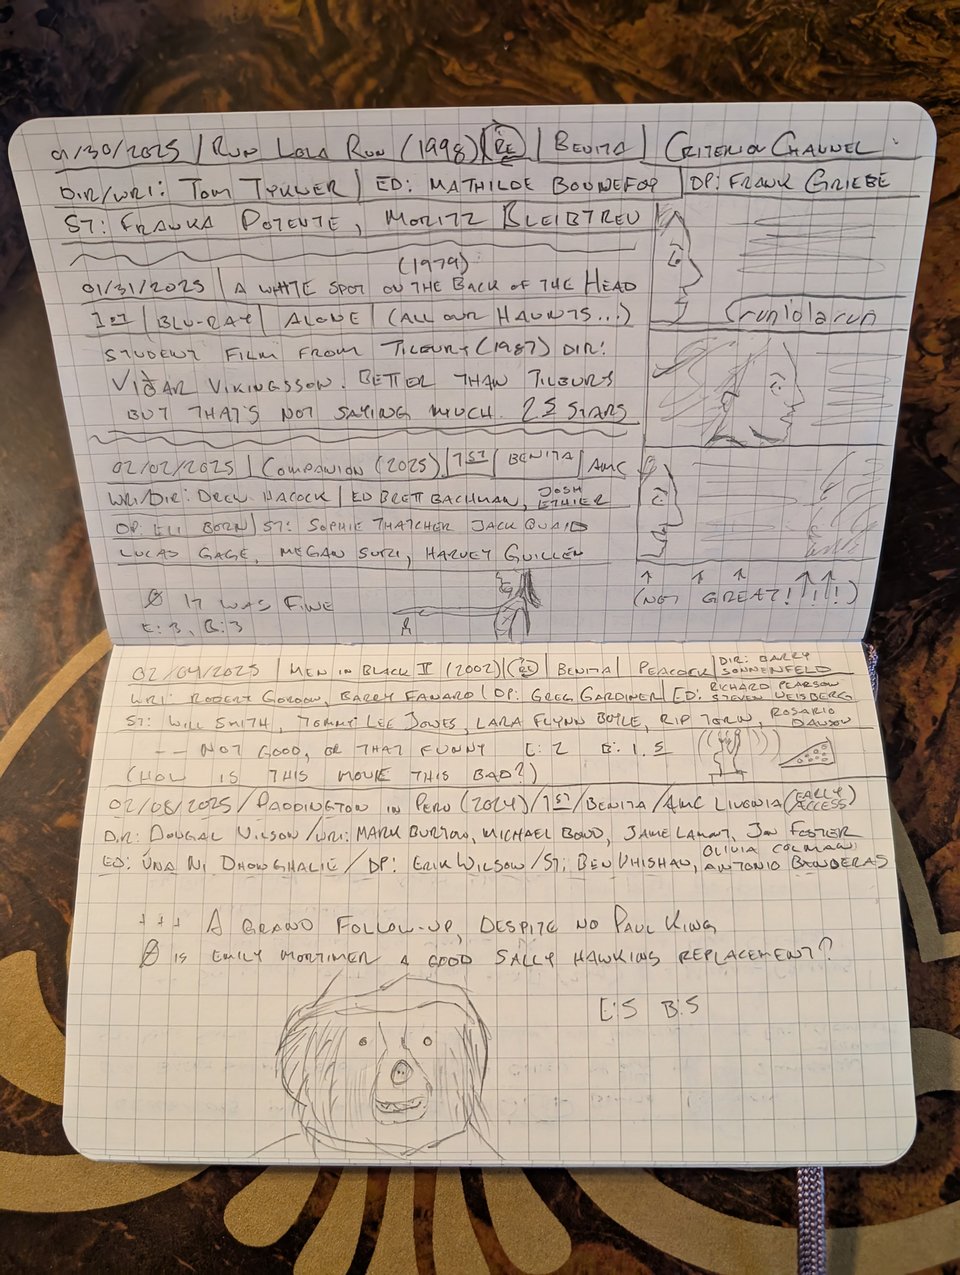 01/30/2025 | RUN LOLA RUN (1998) | RE | BENITA | CRITERION CHANNEL
DIR/WRI: TOM TYKWER | ED: MATHILDE BONNEFOY | DP: FRANK GRIEBE
ST: FRANKA POTENTE, MORITZ BLEIBTREU
(1979)
01/31/2025 | A WHITE SPOT ON THE BACK OF THE HEAD
1ST | BLU-RAY | ALONE | (ALL OUR HAUNTS...)
runlolarun
STUDENT FILM FROM TILBURY (1987) DIR:
VIÐAR VIKINGSSON. BETTER THAN TILBURY
BUT THAT'S NOT SAYING MUCH. 2.5 STARS
02/02/2025 | COMPANION (2025) | 1ST | BENITA | AMC
WRI/DIR: DREW HACOCK | ED BRETT BACHMAN, JOSH ETHIER
DP: ELI BORN | ST: SOPHIE THATCHER JACK QUAID
LUCAS GAGE, MEGAN SURI, HARVEY GUILLÉN
(NOT GREAT!!!)
Ø IT WAS FINE
E: 3, B: 3
02/04/2025 | MEN IN BLACK II (2002) | RE | BENITA | PEACOCK | DIR: BARRY SONNENFELD
WRI: ROBERT GORDON, BARRY FANARO | DP: GREG GARDINER | ED: RICHARD PEARSON STEVEN WEISBERG
ST: WILL SMITH, TOMMY LEE JONES, LARA FLYNN BOYLE, RIP TORN, ROSARIO DAWSON
-- NOT GOOD, OR THAT FUNNY E: 2 B: 1.5
(HOW IS THIS MOVIE THIS BAD?)
02/08/2025 / PADDINGTON IN PERU (2024) / 1ST / BENITA / AMC LIVONIA (EARLY ACCESS)
DIR: DOUGAL WILSON / WRI: MARK BURTON, MICHAEL BOND, JAMIE LAMONT, JON FOSTER
ED: ÚNA NI DHONGHAÍLE / DP: ERIK WILSON / ST: BEN WHISHAW, OLIVIA COLMAN, ANTONIO BANDERAS
+++ A GRAND FOLLOW-UP, DESPITE NO PAUL KING
Ø IS EMILY MORTIMER A GOOD SALLY HAWKINS REPLACEMENT?
E: 5 B: 5